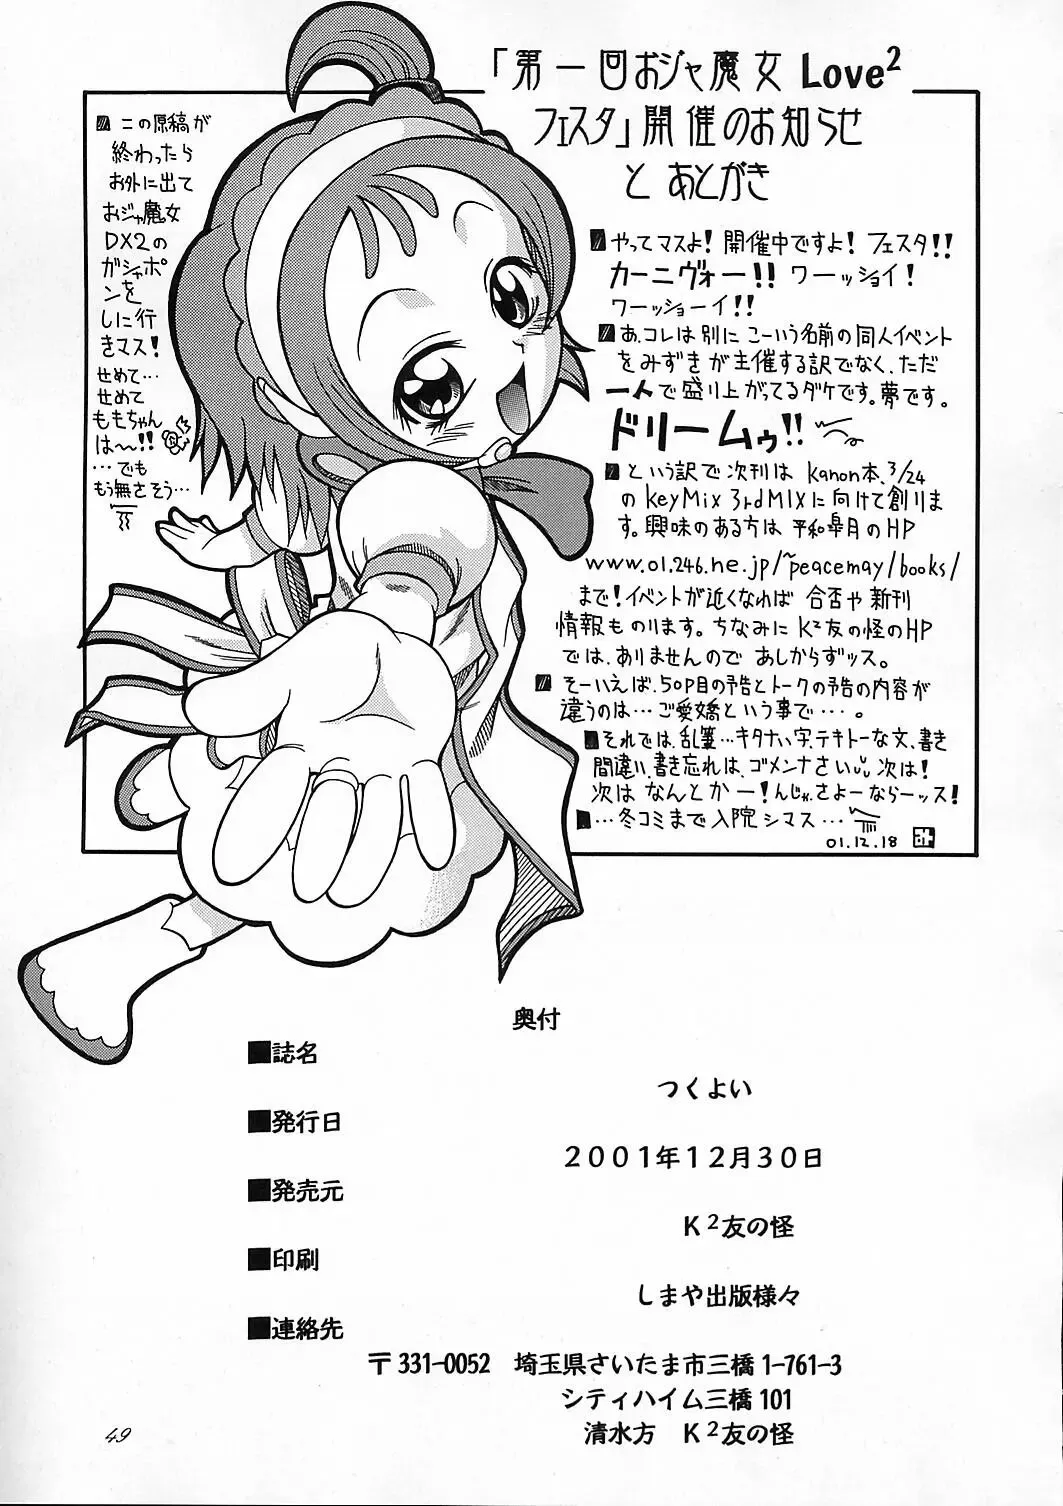 「第一回おジャ魔女 Love²
フェスタ」開催のお知らせ
と あとがき
■この原稿が
終わったら
お外に出て
おジャ魔女
DX2の
ガシャポ
ンを
しに行
きマス!
せめて…
せめて
ももちゃん
は〜!!
…でも
もう無さそう…
■やってマスよ! 開催中ですよ! フェスタ!!
カーニヴォー!! ワーッショイ!
ワーッショーイ!!
■あ、コレは別に こーいう名前の同人イベント
をみずきが主催する訳でなく、ただ
一人で盛り上がってるダケです。夢です。
ドリームゥ!!
■という訳で次刊は Kanon本、3/24
のKeyMix 3rdMIXに向けて創りま
す。興味のある方は 平和皐月のHP
www.01.246.ne.jp/~peacemay/books/
まで!イベントが近くなれば 合否や新刊
情報ものります。ちなみに K²友の怪のHP
では、ありませんので あしからずッス。
■そーいえば、50P目の予告とトークの予告の内容が
違うのは…ご愛嬌という事で…。
■それでは、乱筆…キタナい字、テキトーな文、書き
間違い、書き忘れは、ゴメンナさい 次は!
次は なんとかー!んじゃ、さよーならーッス!
■…冬コミまで入院シマス…
01.12.18
奥付
■誌名
つくよい
■発行日
2001年12月30日
■発売元
K²友の怪
■印刷
しまや出版様々
■連絡先
〒331-0052 埼玉県さいたま市三橋1-761-3
シティハイム三橋101
清水方 K²友の怪
49